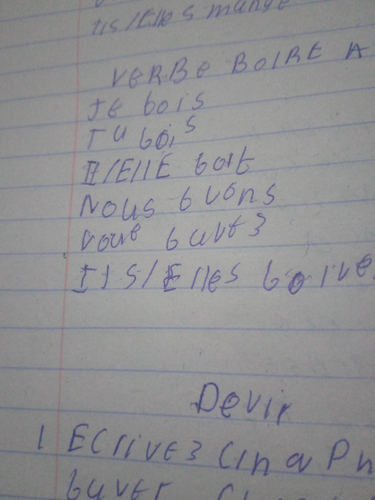 ils/elles mange
VERBE BOIRE A
JE bois
TU bois
Il/ElLE boit
Nous buvons
vous buvez
Ils/Elles boive
Devir
1 Ecrivez cinq Ph
buver